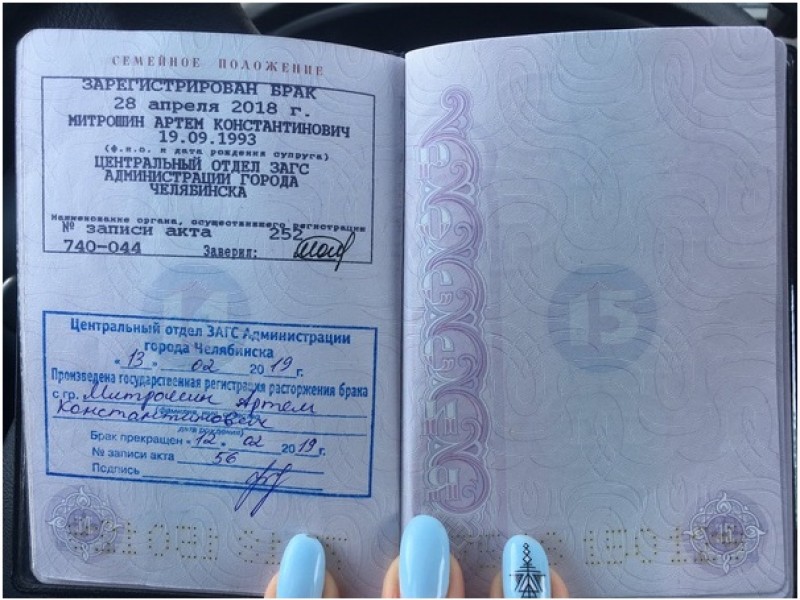 СЕМЕЙНОЕ ПОЛОЖЕНИЕ
ЗАРЕГИСТРИРОВАН БРАК
28 апреля 2018 г.
МИТРОШИН АРТЕМ КОНСТАНТИНОВИЧ
19.09.1993
(ф.и.о. и дата рождения супруга)
ЦЕНТРАЛЬНЫЙ ОТДЕЛ ЗАГС
АДМИНИСТРАЦИИ ГОРОДА
ЧЕЛЯБИНСКА
Наименование органа, осуществившего регистрацию
№ записи акта 252
740-044 Заверил:
14
Центральный отдел ЗАГС Администрации
города Челябинска
"13" 02 2019 г.
Произведена государственная регистрация расторжения брака
с гр. Митрошин Артем
Константинович
дата рождения
Брак прекращен "12" 02 2019 г.
№ записи акта 56
Подпись
14
15
15